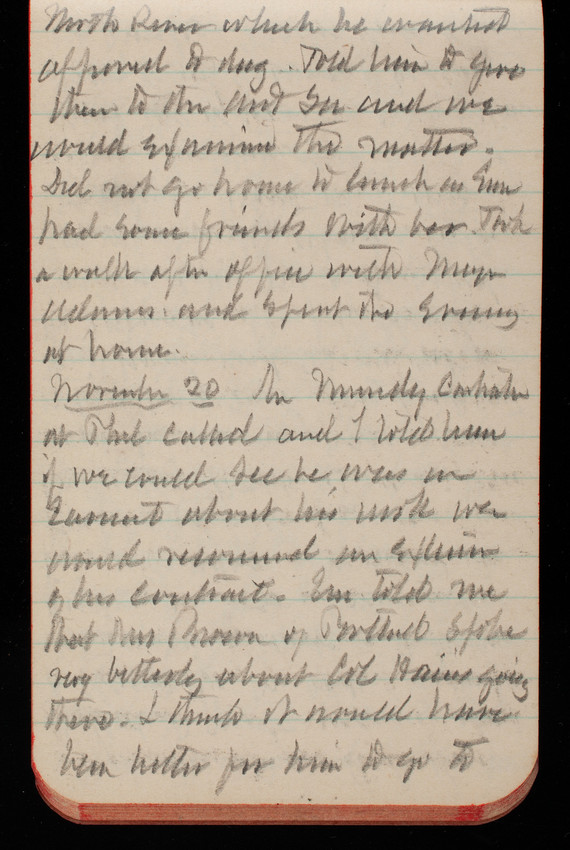 North River which he wanted
approved to day. Told him to give
them to the and we
would examine the matter.
Did not go home to lunch as Em
had some friends with her. Took
a walk after office with Major
Adams and spent the evening
at home.
November 20 Mr Mundy Contractor
at Phil called and I told him
if we could see he was in
earnest about his work we
would recommend an extension
of his contract. Em told me
that Mrs Brown of Portland spoke
very bitterly about Col Hains going
there. I think it would have
been better for him to go to